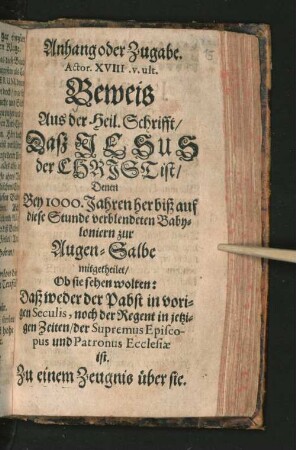 Anhang oder Zugabe.
Actor. XVIII. v. ult.
Beweis
Aus der Heil. Schrifft/
Daß JESUS
der CHRIST ist/
Denen
Bey 1000. Jahren her biß auf
diese Stunde verblendeten Baby-
loniern zur
Augen-Salbe
mitgetheilet/
Ob sie sehen wolten:
Daß weder der Pabst in vori-
gen Seculis, noch der Regent in jetzi-
gen Zeiten/der Supremus Episco-
pus und Patronus Ecclesiæ
ist.
Zu einem Zeugnis über sie.